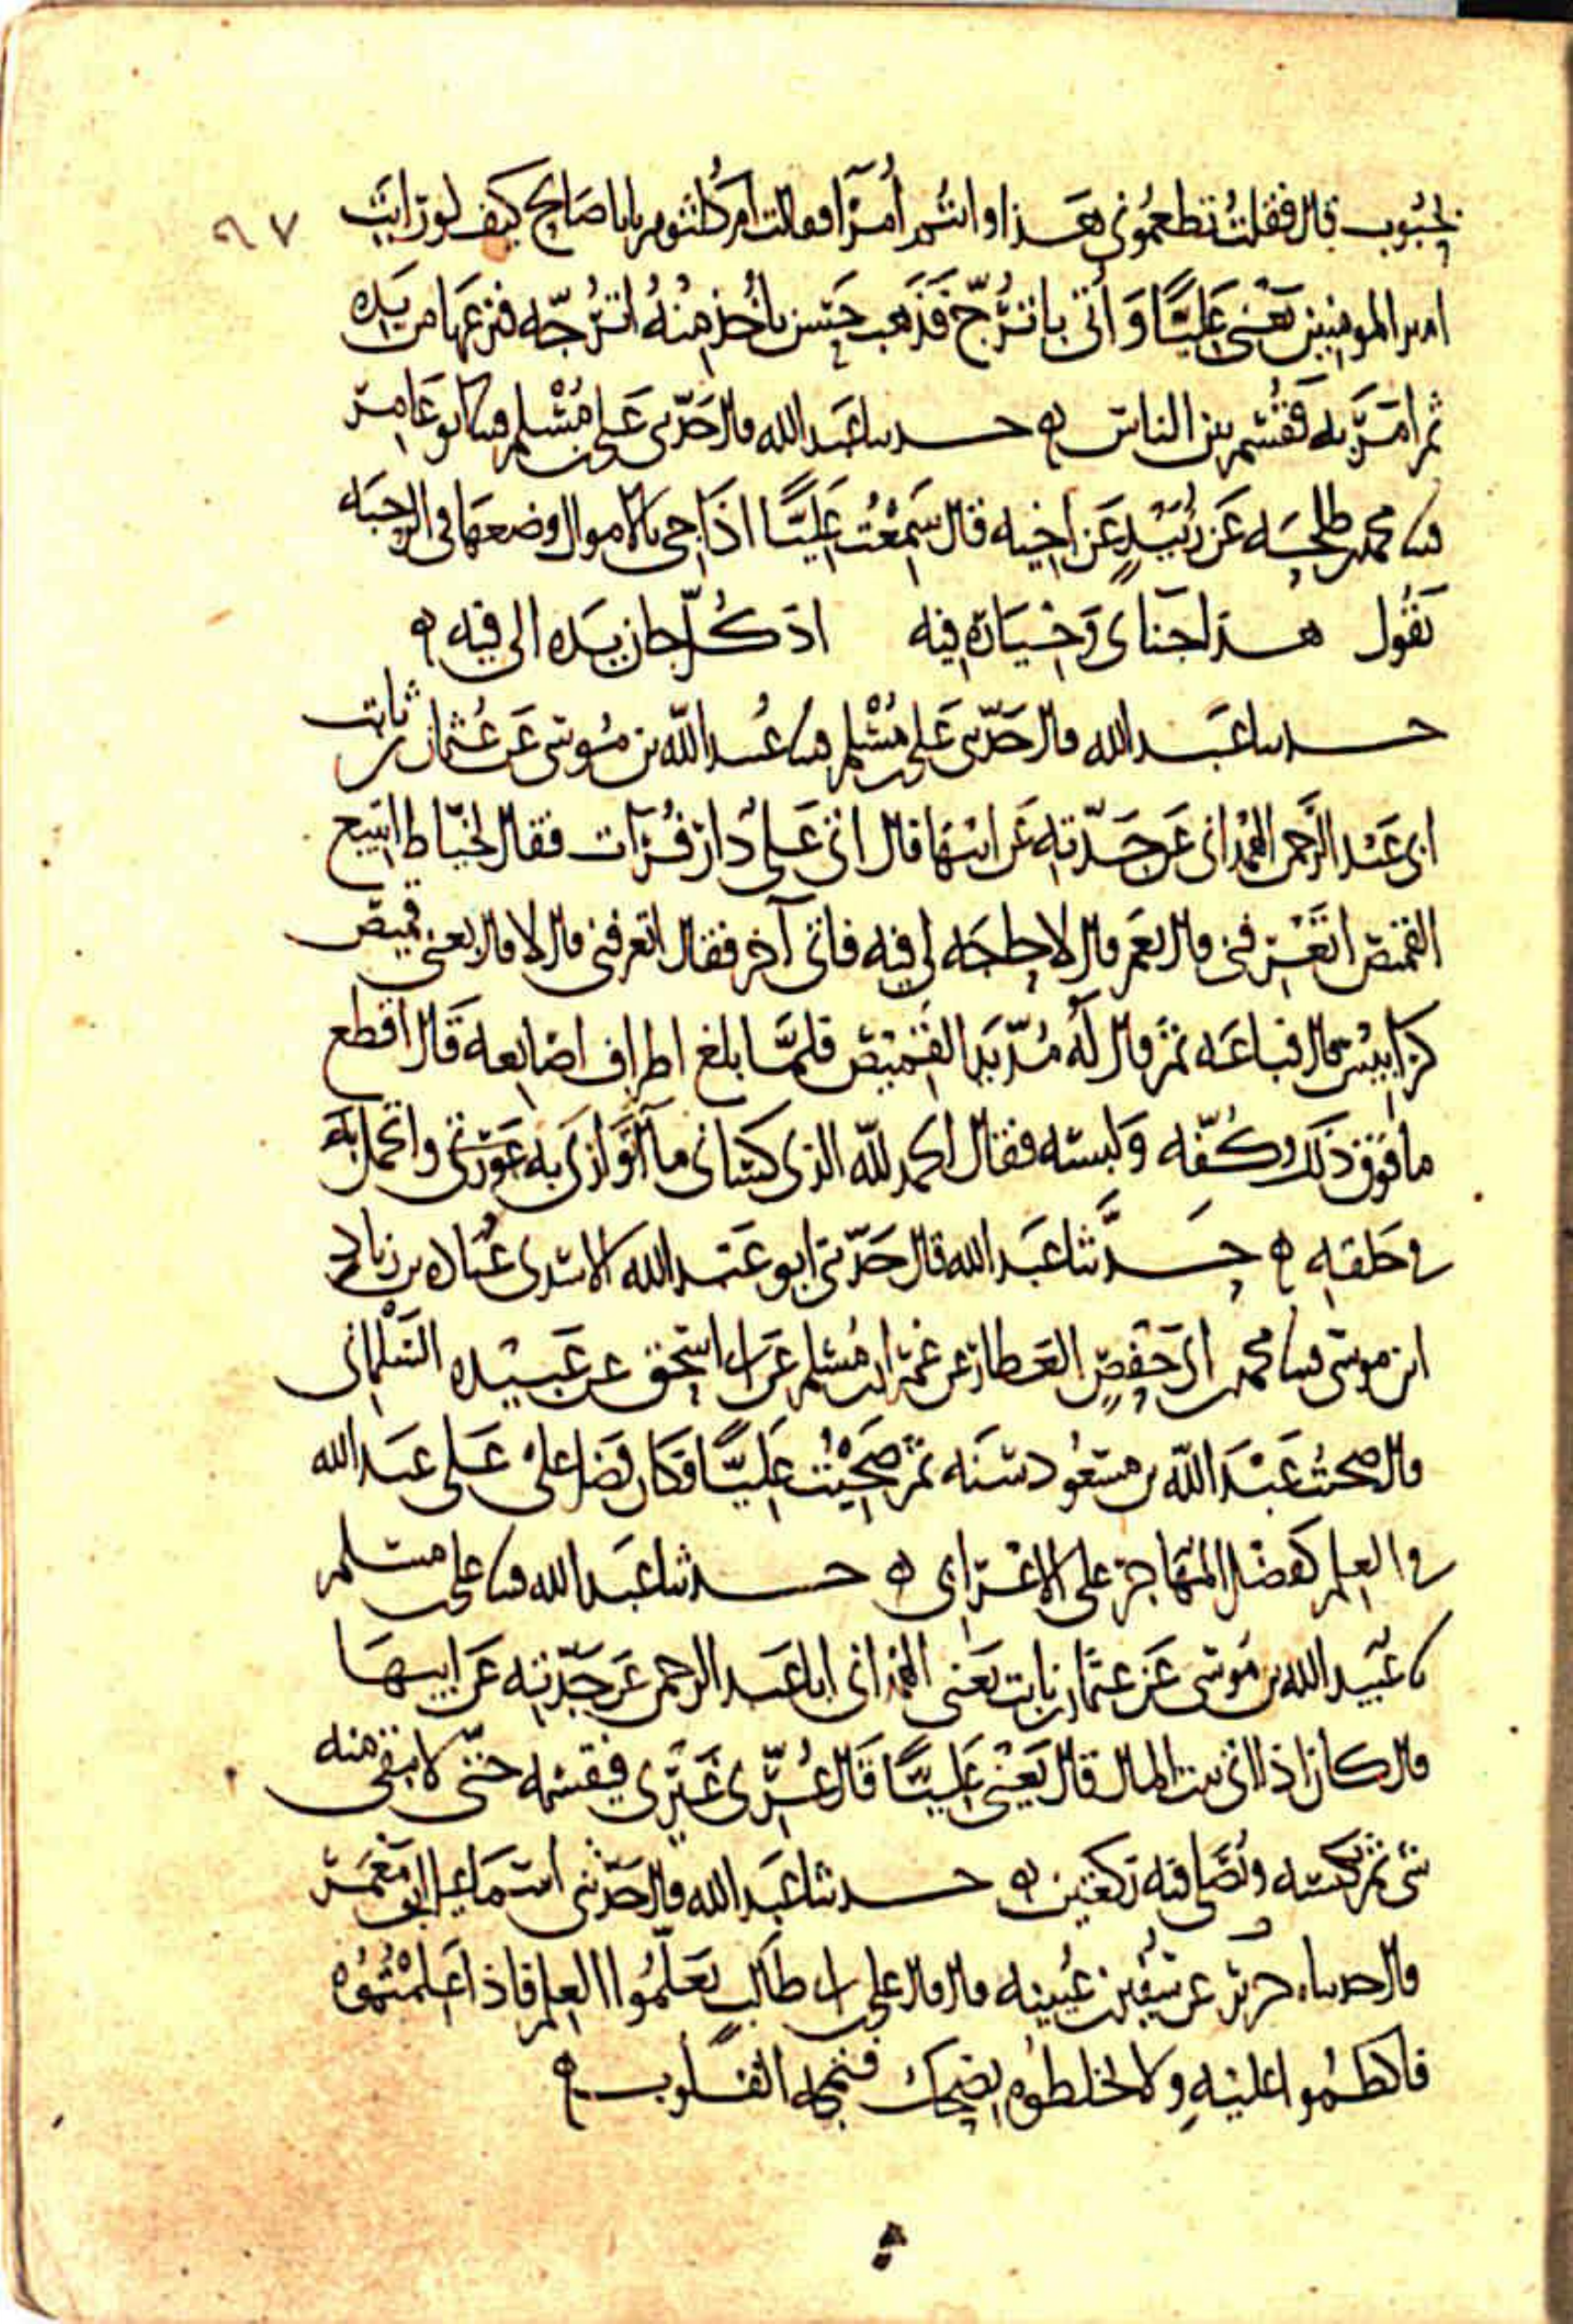 بحبوب قال فقلت تطعموني هذا وانتم أُمَرَآ فقالت ام كلثوم يابا صالح كيف لو رايت
٩٧
امير المومنين يعني عَلِيًّا وَأُتِي باترُجّ فَذَهَب حَسَن ياخُذ مِنْهُ اُتْرُجّه فنزعها من يَدِه
ثم امَرَ به فَقُسِم بين الناس ه حدثنا عبد الله قال حَدّثني عَلي بن مُسْلِم ثنا ابو عَامِر
ثنا محمد بن طلحه عَن زُبَيْدٍ عَن اخيه قال سَمِعْت عَلِيًّا اذا جي بالاموال وضعها في الرحبَه
يقُول هذا جناي وَخِيَاره فيه اذ كُلّ جان يَده الى فيه ه
حدثنا عَبد الله قال حَدّثني عَلي بن مُسْلم ثنا عُبيد الله بن مُوسَى عَن عُثمان بن ثابت
ابي عَبْد الرَّحمن الهمْدَاني عَن جَدّته عَن ابيها قال اتى عَلي دار فُرَات فقال لخيّاط اتبيع
القميص اتَعْرِفني قال نعم قال لا حاجَه لي فيه فاتى آخر فقال اتعرفني قال لا قال بعني قميص
كرابيس قال فباعَه ثمّ قال لَهُ مُدّ يَد القَمِيص فلمَّا بلغ اطراف اصَابعه قَال اقطع
ما فوق ذلك وكُفّه وَلبسَه فقال الحمد لله الذي كسَاني ما اتوَارَى به عَوْرَتي واتجمل به
في خلقه ه حَدَّثنا عَبد الله قال حَدّثني ابو عَبد الله الاسَدي عبَّاد بن زياد
ابن موسَى ثنا محمد بن ابي حَفْصٍ العَطار عن عُمَر ابن مُسْلم عَن ابي اسحق عن عَبيده السَّلْماني
قال صحبت عَبْدَ الله بن مسْعُود سَنَه ثمّ صَحِبْت عَلِيًّا فكان فضل علي عَلى عبد الله
في العلم كفضل المهَاجر على الاعْرَابي ه حدثنا عَبد الله ثنا علي بن مسلم
ثنا عُبَيد الله بن مُوسَى عَن عثمان بن ثابت يَعْني الهمداني ابا عَبد الرحمن عَن جَدّته عَن ابيها
قال كان اذا اتى بيت المال قال يَعْني عَلِيًّا قَال غُرِّي غَيْرِي فيقسمه حتّى لا يبقى منه
شي ثم يَكنسه ويُصَلي فيه رَكعتين ه حدثنا عَبد الله قال حَدّثني اسمَاعيل ابو مَعْمَر
قال حدثنا جرير عن سُفين بن عُيينه قال قال علي بن ابي طالب تَعَلَّمُوا العِلم فاذا عَلِمْتُمُوه
فاكظمُوا عليْهِ ولا تخلطُوه بضحك فتمجه القلوب ه